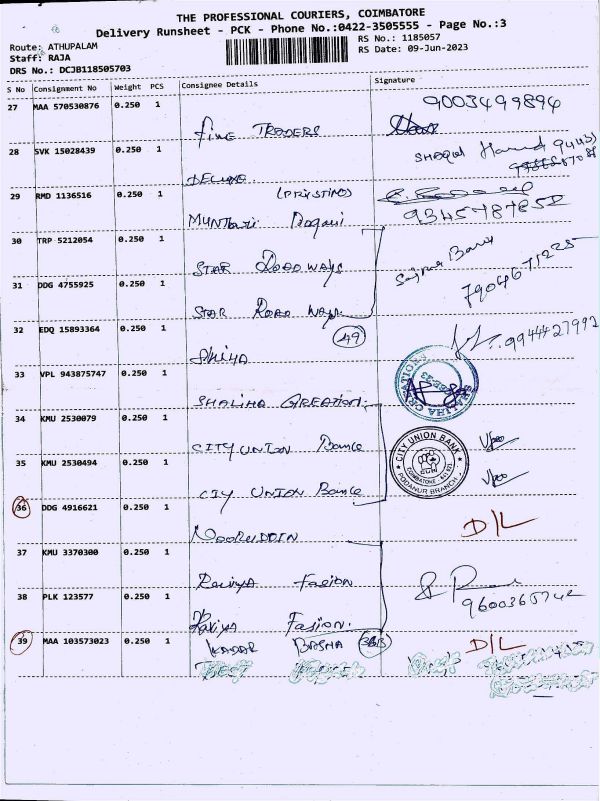 THE PROFESSIONAL COURIERS, COIMBATORE
Delivery Runsheet - PCK - Phone No.:0422-3505555 - Page No.:3
Route: ATHUPALAM
RS No.: 1185057
Staff: RAJA
RS Date: 09-Jun-2023
DRS No.: DCJB118505703
S No Consignment No Weight PCS Consignee Details Signature
27 MAA 570530876 0.250 1 9003499894
fine TRADERS
28 SVK 15028439 0.250 1
DELUXE
29 RMD 1136516 0.250 1 (PRISTINE)
9345787852
30 TRP 5212054 0.250 1
STAR ROAD WAYS
31 DDG 4755925 0.250 1 7904671225
STAR ROAD WAYS
32 EDQ 15893364 0.250 1 49 9944427992
SHIYA
33 VPL 943875747 0.250 1
SHALIHA CREATION
34 KMU 2530079 0.250 1
CITY UNION Bank
CITY UNION BANK
COIMBATORE - 641 023
PODANUR BRANCH
35 KMU 2530494 0.250 1
CIY UNION Bank
36 DDG 4916621 0.250 1 D/L
NOORUDDIN
37 KMU 3370300 0.250 1
Raviya Fasion
38 PLK 123577 0.250 1 9600365742
Raviya Fasion.
39 MAA 103573023 0.250 1 KADAR BASHA D/L